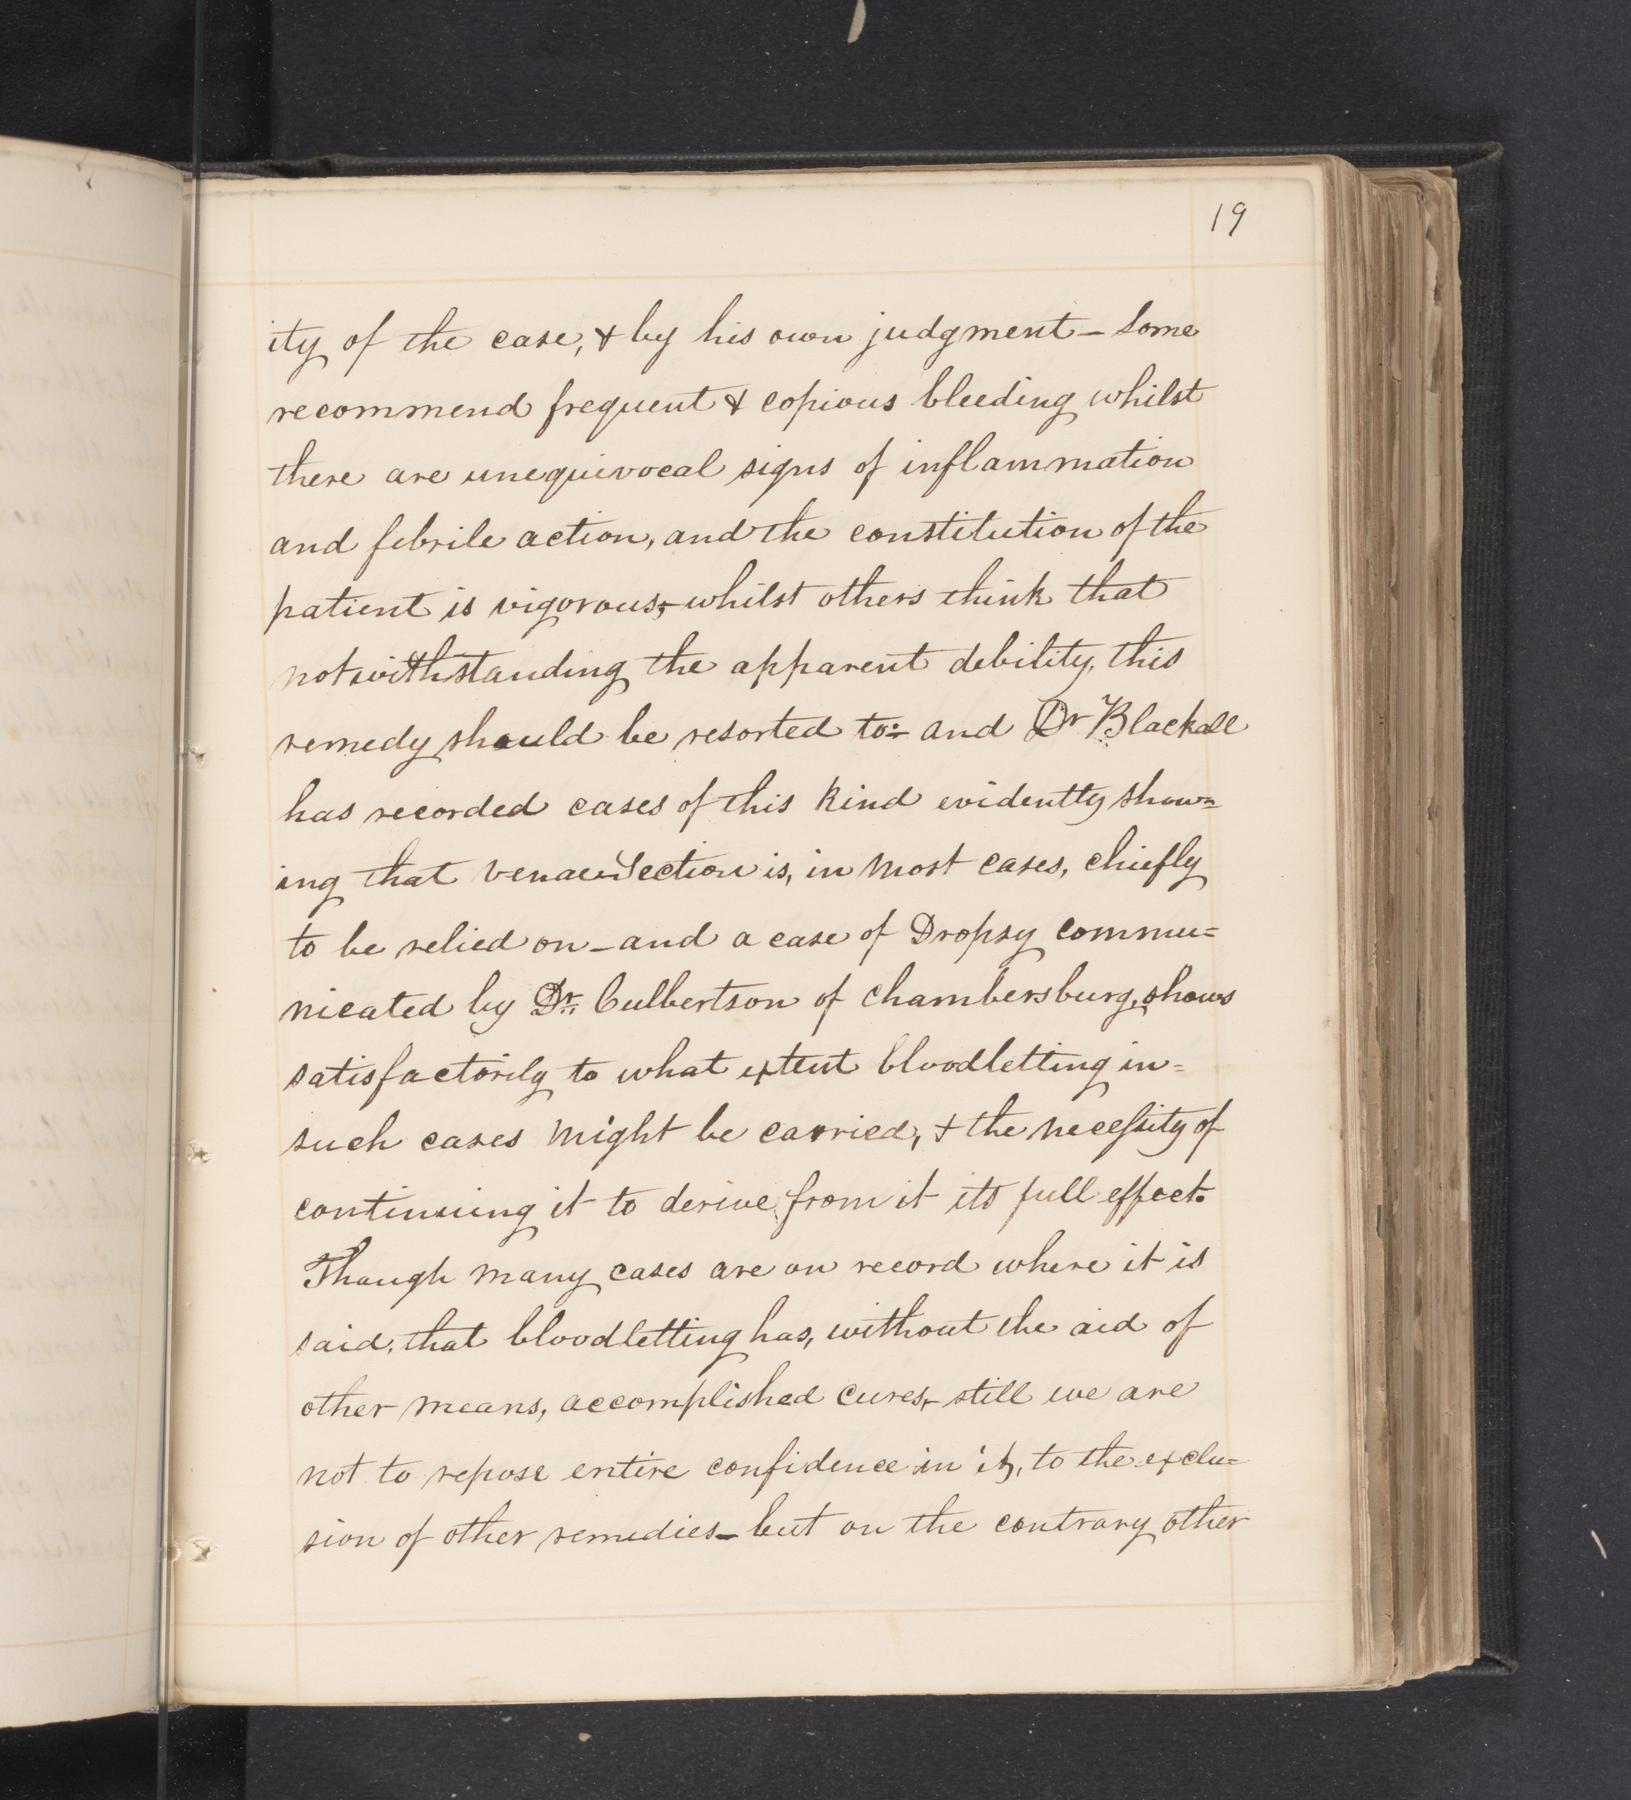 19
ity of the case, & by his own judgment – Some
recommend frequent & copious bleeding whilst
there are unequivocal signs of inflammation
and febrile action, and the constitution of the
patient is vigorous, – whilst others think that
notwithstanding the apparent debility, this
remedy should be resorted to: – and Dr Blackall
has recorded cases of this kind evidently show=
ing that venaesection is, in most cases, chiefly
to be relied on – and a case of Dropsy commu=
nicated by Dr. Culbertson of Chambersburg, shows
satisfactorily to what extent bloodletting in=
such cases might be carried, & the necessity of
continuing it to derive from it its full effect.
Though many cases are on record where it is
said, that bloodletting has, without the aid of
other means, accomplished cures, – still we are
not to repose entire confidence in it, to the exclu=
sion of other remedies – but on the contrary other